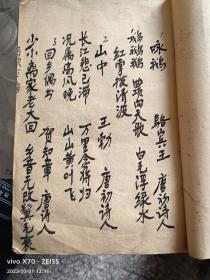 咏鹅 骆宾王 唐初诗人
鹅鹅鹅 曲曲天歌 白毛浮绿水
红掌拨清波
2 山中 王勃 唐初诗人
长江悲已滞 万里念将归
况属高风晚 山山黄叶飞
3 回乡偶书 贺知章 唐诗人
少小离家老大回 乡音无改鬓毛衰
vivo X70 · ZEISS
2023/03/01 12:16